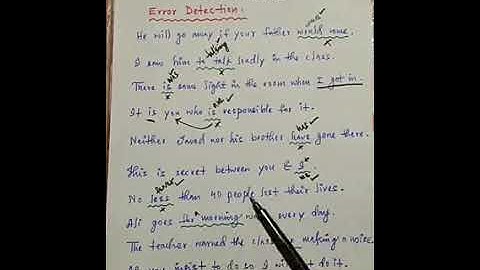 Error Detection:
comes
He will go away if your father would come.
talking
I saw him to talk loudly in the class.
was
There is some light in the room when I got in.
are
It is you who is responsible for it.
has
Neither Javed nor his brother have gone there.
This is secret between you & I
me
fewer
No less than 40 people lost their lives.
Ali goes for morning every day.
The teacher warned the class making a noise.